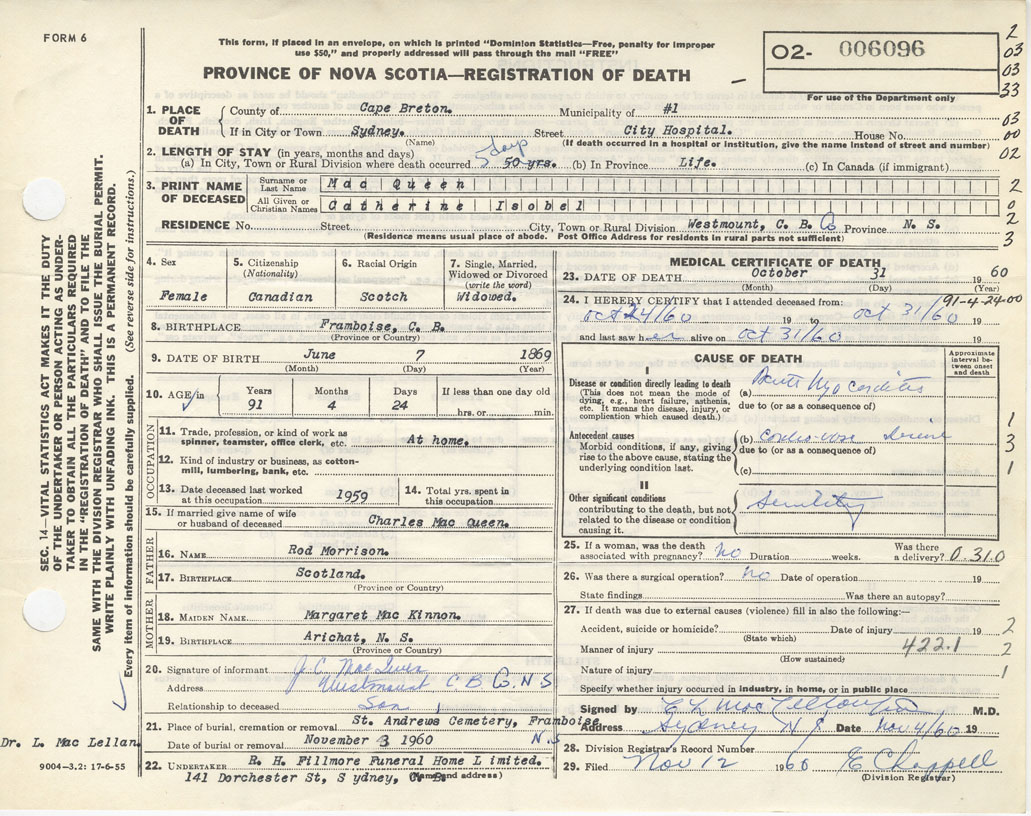 FORM 6
This form, if placed in an envelope, on which is printed "Dominion Statistics—Free, penalty for improper
use $50," and properly addressed will pass through the mail "FREE"
PROVINCE OF NOVA SCOTIA—REGISTRATION OF DEATH
O2- 006096
For use of the Department only
2
03
03
33
03
00
02
2
0
2
3
1. PLACE OF DEATH
County of Cape Breton. Municipality of #1
If in City or Town Sydney. Street City Hospital. House No.
(Name) (If death occurred in a hospital or institution, give the name instead of street and number)
2. LENGTH OF STAY (in years, months and days)
(a) In City, Town or Rural Division where death occurred 5 days 50 yrs. (b) In Province Life. (c) In Canada (if immigrant)
3. PRINT NAME OF DECEASED
Surname or Last Name Mac Queen
All Given or Christian Names Catherine Isobel
RESIDENCE No. Street City, Town or Rural Division Westmount, C. B. Co Province N. S.
(Residence means usual place of abode. Post Office Address for residents in rural parts not sufficient)
4. Sex
Female
5. Citizenship
(Nationality)
Canadian
6. Racial Origin
Scotch
7. Single, Married,
Widowed or Divorced
(write the word)
Widowed.
8. BIRTHPLACE Framboise, C. B.
(Province or Country)
9. DATE OF BIRTH June 7 1869
(Month) (Day) (Year)
10. AGE
Years Months Days If less than one day old
91 4 24 hrs. or min.
OCCUPATION
11. Trade, profession, or kind of work as
spinner, teamster, office clerk, etc. At home.
12. Kind of industry or business, as cotton-
mill, lumbering, bank, etc.
13. Date deceased last worked
at this occupation 1959
14. Total yrs. spent in
this occupation
15. If married give name of wife
or husband of deceased Charles Mac Queen.
FATHER
16. NAME Rod Morrison.
17. BIRTHPLACE Scotland.
(Province or Country)
MOTHER
18. MAIDEN NAME Margaret Mac Kinnon.
19. BIRTHPLACE Arichat, N. S.
(Province or Country)
20. Signature of informant J. C.
Address Westmount C B Co. N S
Relationship to deceased Son
21. Place of burial, cremation or removal St. Andrews Cemetery, Framboise,
N. S
Date of burial or removal November 3 1960
22. UNDERTAKER R. H. Fillmore Funeral Home Limited.
141 Dorchester St, Sydney,
(Name and address)
MEDICAL CERTIFICATE OF DEATH
23. DATE OF DEATH October 31 1960
(Month) (Day) (Year)
91-4-24-00
24. I HEREBY CERTIFY that I attended deceased from:
Oct 24/60 19 to Oct 31/60 19
and last saw her alive on Oct 31/60 19
CAUSE OF DEATH
Approximate
interval be-
tween onset
and death
I
Disease or condition directly leading to death
(This does not mean the mode of
dying, e.g., heart failure, asthenia,
etc. It means the disease, injury, or
complication which caused death.)
(a) Acute Myocarditis
due to (or as a consequence of)
Antecedent causes
Morbid conditions, if any, giving
rise to the above cause, stating the
underlying condition last.
(b)
due to (or as a consequence of)
(c)
II
Other significant conditions
contributing to the death, but not
related to the disease or condition
causing it.
Senility
1
3
1
25. If a woman, was the death
associated with pregnancy? no Duration weeks. Was there
a delivery? 0.310
26. Was there a surgical operation? no Date of operation 19
State findings Was there an autopsy?
27. If death was due to external causes (violence) fill in also the following:—
Accident, suicide or homicide? Date of injury 19 2
(State which)
Manner of injury 422.1 2
(How sustained)
Nature of injury 1
Specify whether injury occurred in industry, in home, or in public place
Signed by M.D.
Address Sydney N S Date Nov 4/60 19
28. Division Registrar's Record Number
29. Filed Nov 12 1960 E Chappell
(Division Registrar)
SEC. 14—VITAL STATISTICS ACT MAKES IT THE DUTY
OF THE UNDERTAKER OR PERSON ACTING AS UNDER-
TAKER TO OBTAIN ALL THE PARTICULARS REQUIRED
IN THE "REGISTRATION OF DEATH" AND TO FILE THE
SAME WITH THE DIVISION REGISTRAR WHO SHALL ISSUE THE BURIAL PERMIT.
WRITE PLAINLY WITH UNFADING INK. THIS IS A PERMANENT RECORD.
Every item of information should be carefully supplied. (See reverse side for instructions.)
Dr. L. Mac Lellan
9004-3.2: 17-6-55